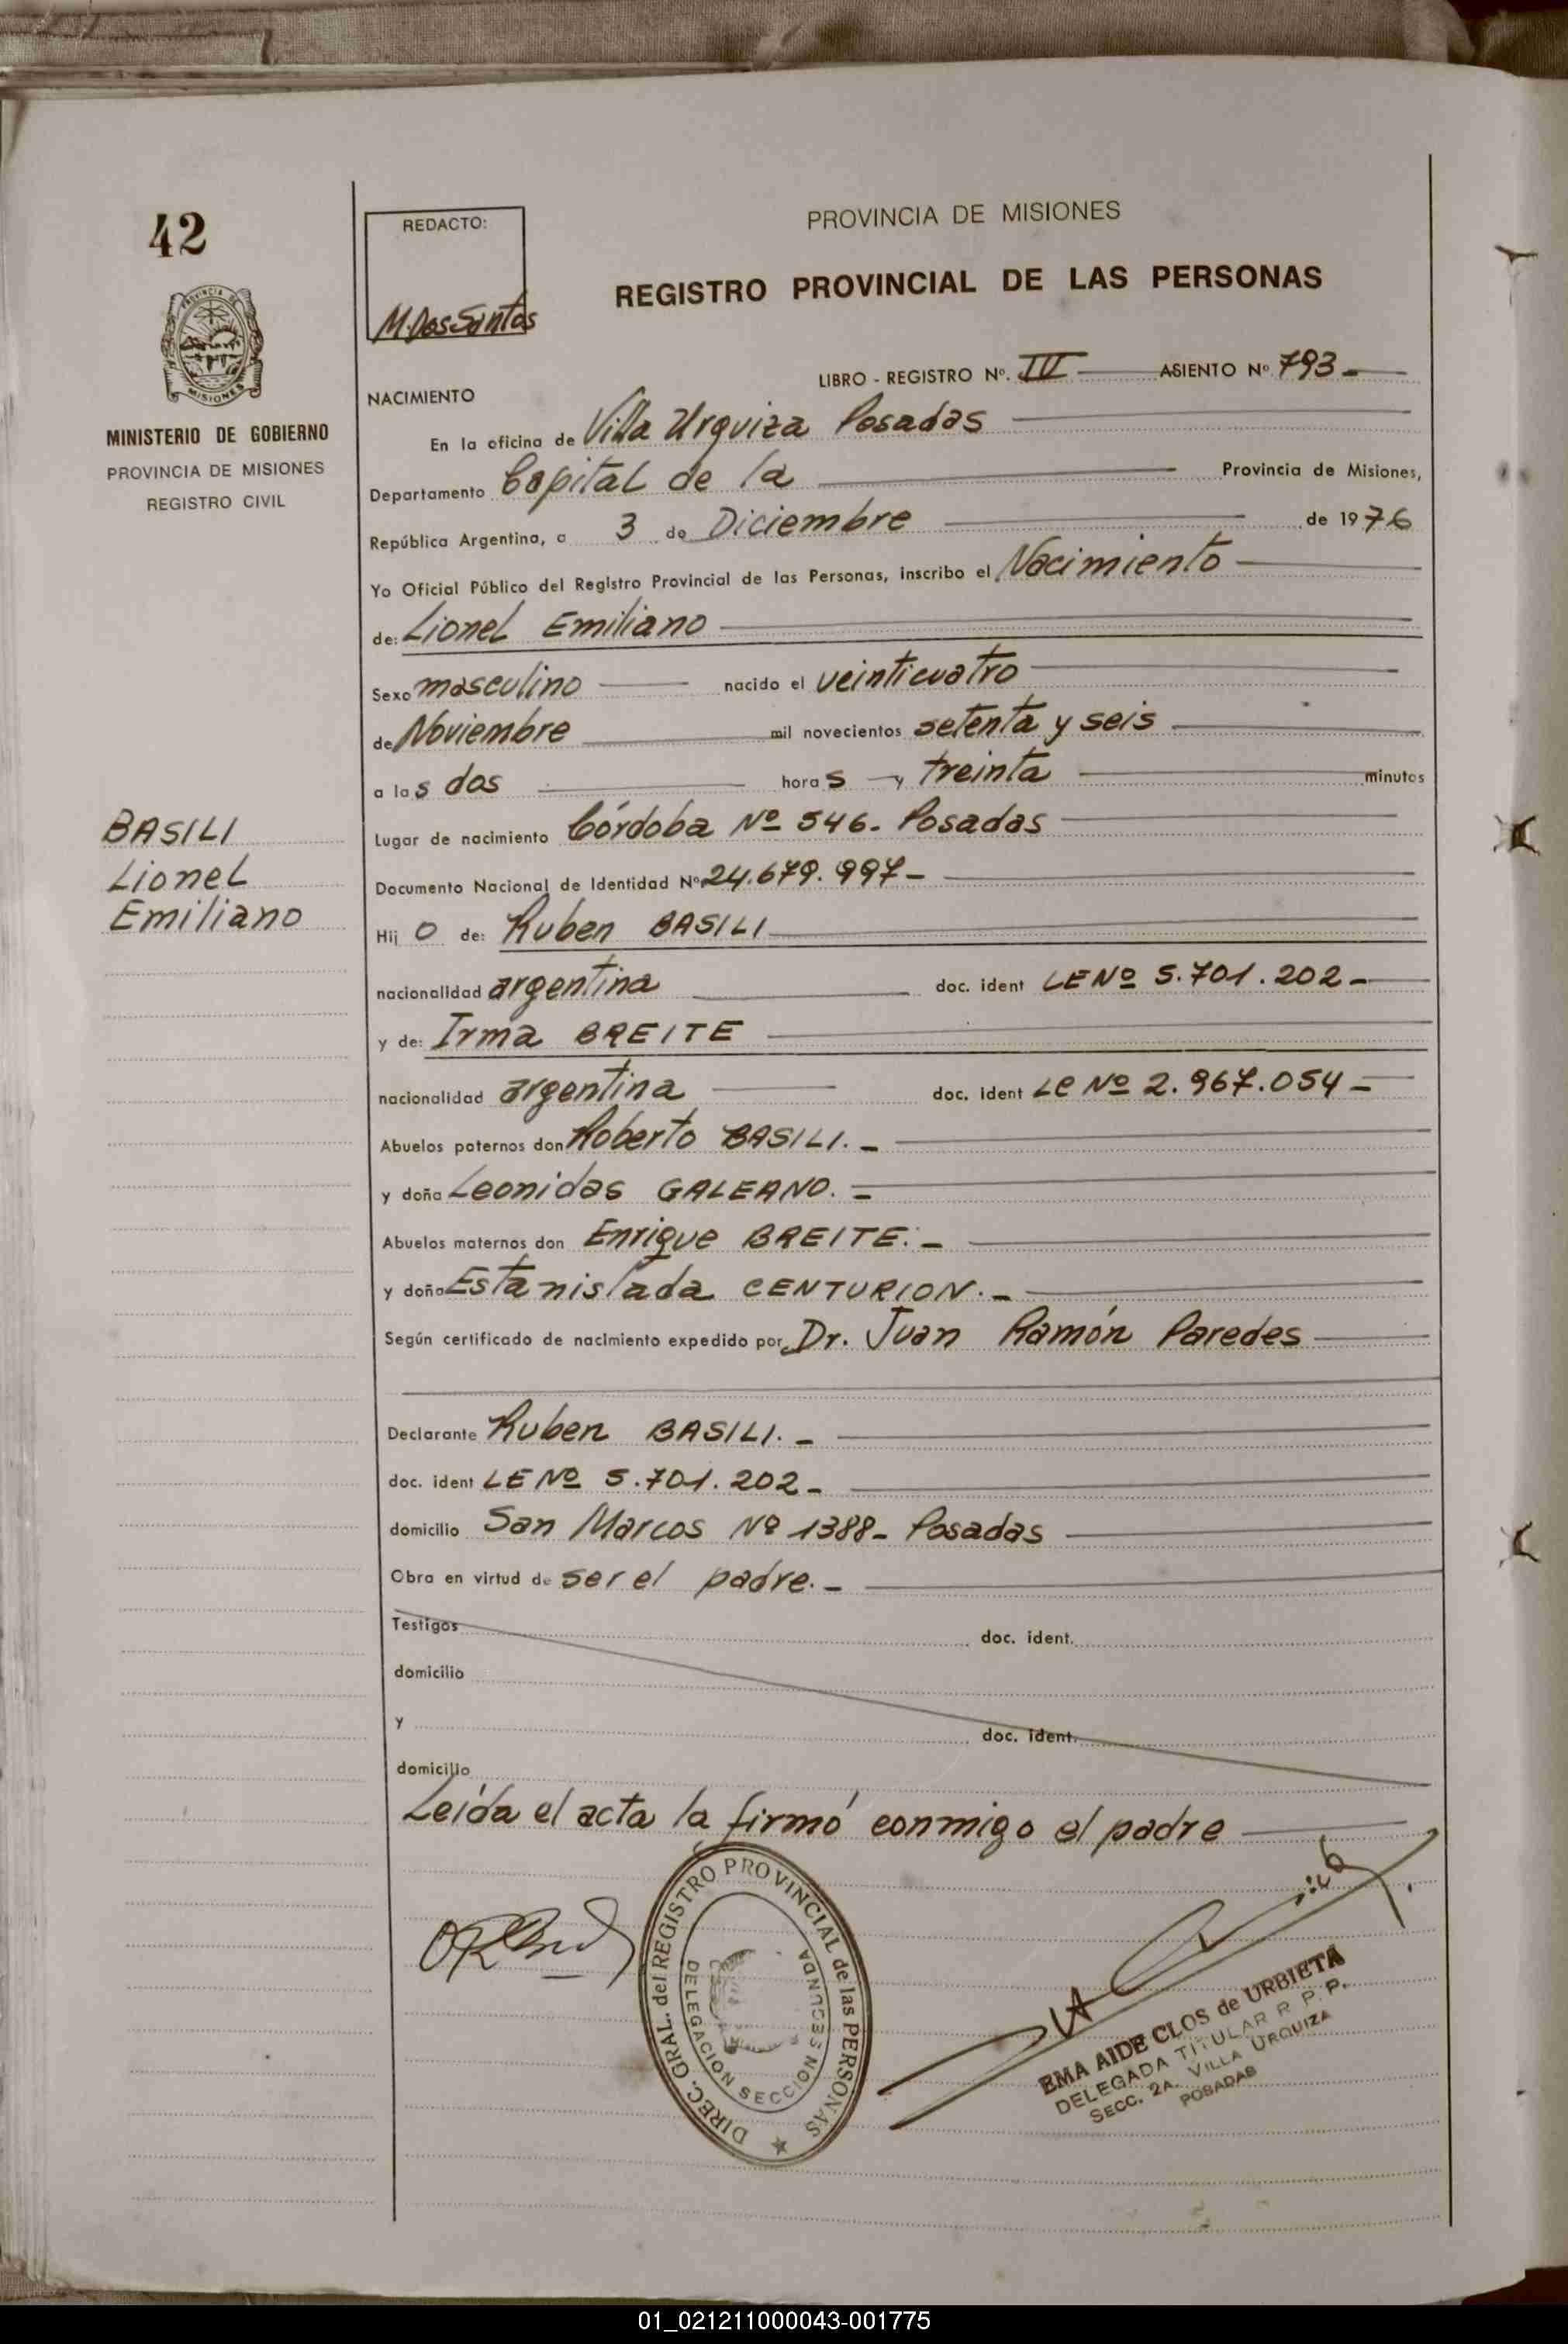 42
PROVINCIA DE
MISIONES
MINISTERIO DE GOBIERNO
PROVINCIA DE MISIONES
REGISTRO CIVIL
BASILI
Lionel
Emiliano
REDACTO:
M. Dos Santos
PROVINCIA DE MISIONES
REGISTRO PROVINCIAL DE LAS PERSONAS
LIBRO - REGISTRO Nº. IV ASIENTO Nº 793-
NACIMIENTO
En la oficina de Villa Urquiza Posadas
Departamento Capital de la Provincia de Misiones,
República Argentina, a 3 de Diciembre de 1976
Yo Oficial Público del Registro Provincial de las Personas, inscribo el Nacimiento
de: Lionel Emiliano
Sexo masculino nacido el veinticuatro
de Noviembre mil novecientos setenta y seis
a las dos horas y treinta minutos
Lugar de nacimiento Córdoba Nº 546- Posadas
Documento Nacional de Identidad Nº 24.679.997-
Hijo de: Ruben BASILI
nacionalidad argentina doc. ident LE Nº 5.701.202-
y de: Irma BREITE
nacionalidad argentina doc. ident LC Nº 2.967.054-
Abuelos paternos don Roberto BASILI.-
y doña Leonidas GALEANO.-
Abuelos maternos don Enrique BREITE.-
y doña Estanislada CENTURION.-
Según certificado de nacimiento expedido por Dr. Juan Ramón Paredes
Declarante Ruben BASILI.-
doc. ident LE Nº 5.701.202-
domicilio San Marcos Nº 1388- Posadas
Obra en virtud de ser el padre.-
Testigos doc. ident.
domicilio
y doc. ident.
domicilio
Leída el acta la firmó conmigo el padre
DIREC. GRAL. del REGISTRO PROVINCIAL de las PERSONAS
DELEGACION SECCION SEGUNDA
EMA AIDE CLOS de URBIETA
DELEGADA TITULAR R. P. P.
SECC. 2A. VILLA URQUIZA
POSADAS
01_021211000043-001775